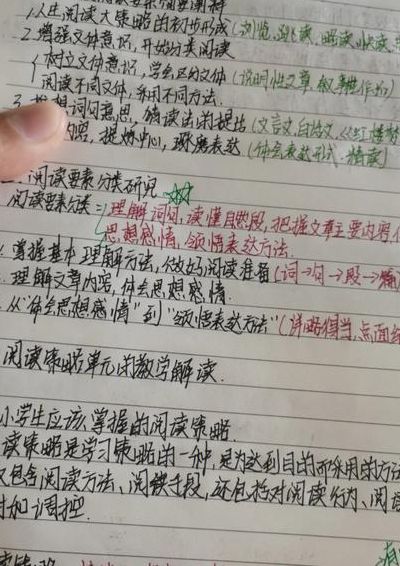 1.人生阅读大策略的初步形成(浏览、跳读、略读、快读
2.增强文体意识,开始分类阅读
树立文体意识,学会区分文体(说明性文章、叙事性作品)
阅读不同文体,采用不同方法.
3.
(文言文、白话文、《红楼梦
内容,提炼中心,琢磨表达(体会表达形式、精读)
二、阅读要素分类研究
阅读要素分类:理解词句,读懂自然段,把握文章主要内容,
思想感情,领悟表达方法.
掌握基本理解方法,做好阅读准备(词→句→段→篇
理解文章内容,体会思想感情.
从“体会思想感情”到“领悟表达方法”(详略得当,点面结
阅读策略单元的教学解读.
小学生应该掌握的阅读策略.
读策略是学习策略的一种,是为达到目的而采用的方法
仅包含阅读方法、阅读手段,还包括对阅读行为、阅读
加调控.